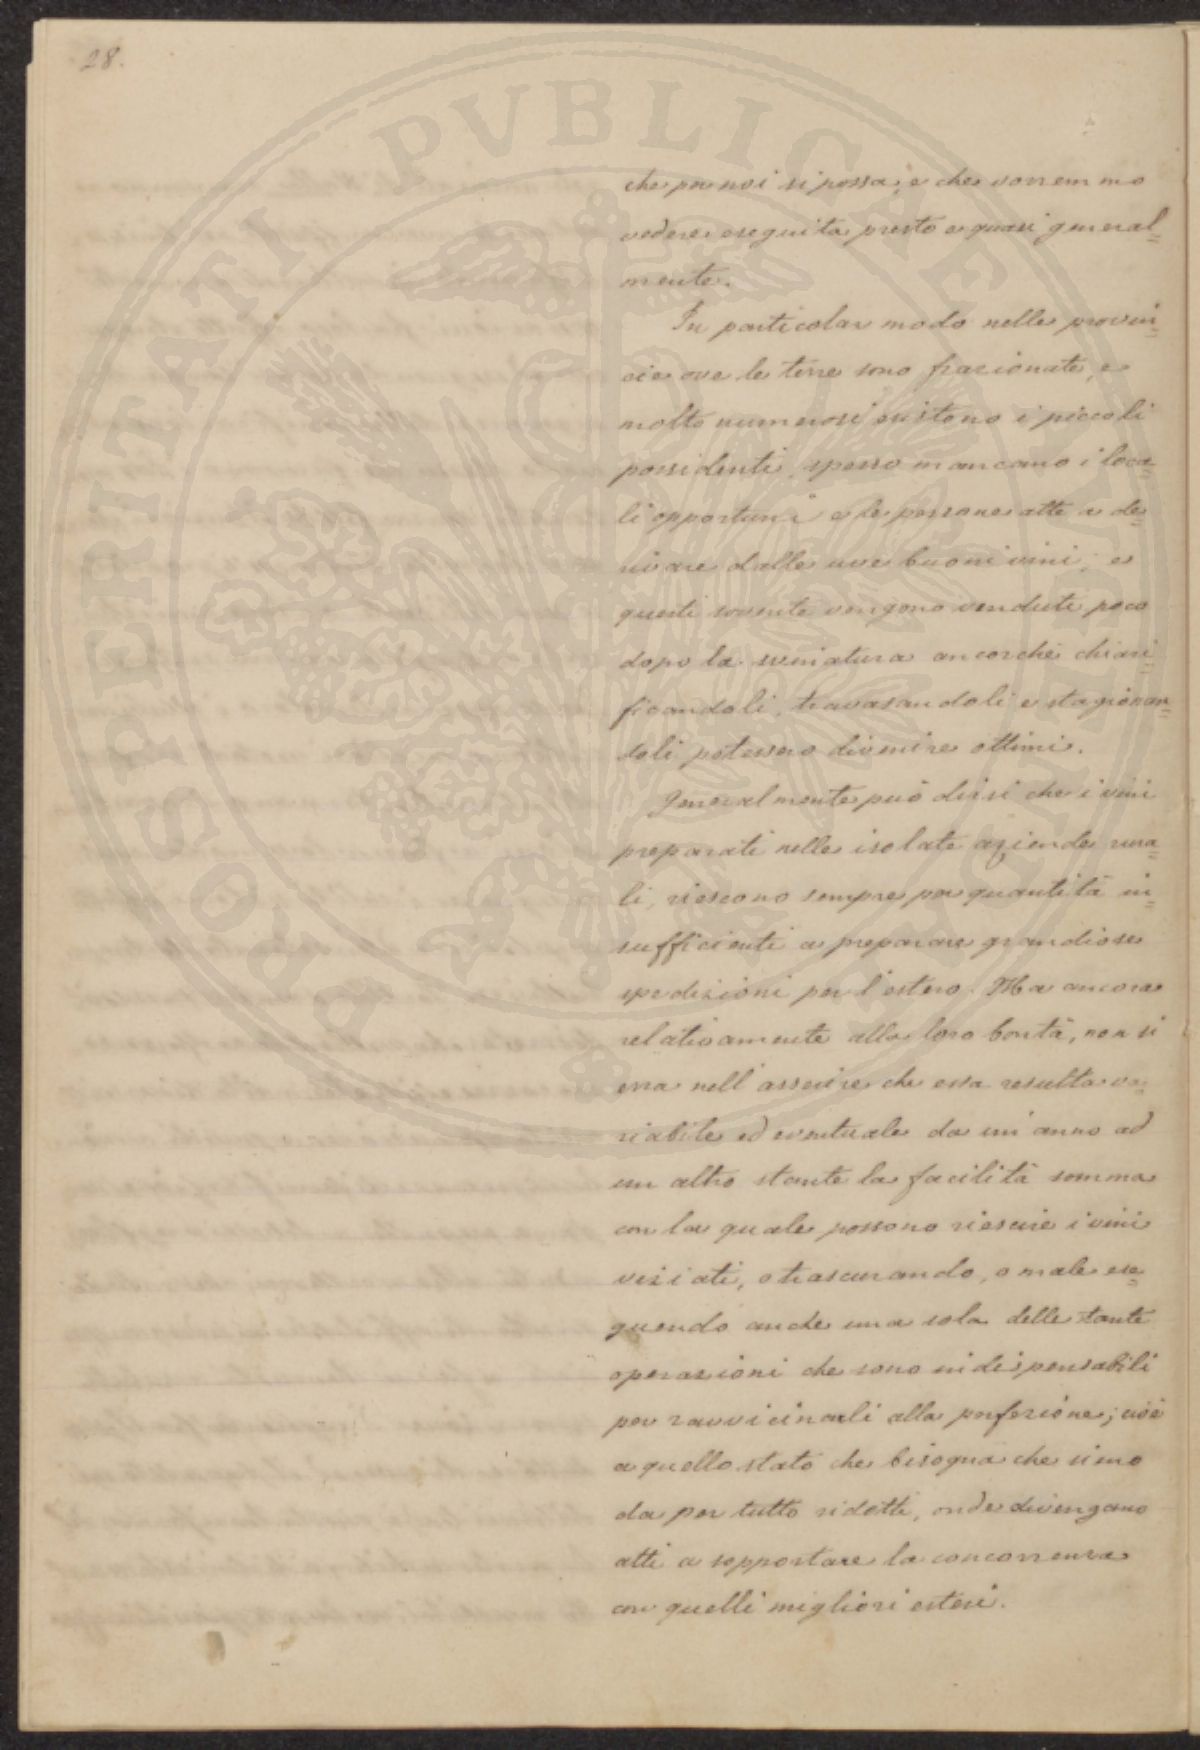 28.
PROSPERITATI PVBLICAE AVGENDAE
che per noi si possa, e che vorremmo
vedere eseguita presto e quasi general=
mente.
In particolar modo nelle provin=
cie ove le terre sono frazionate, e
molto numerosi esistono i piccoli
possidenti, spesso mancano i loca=
li opportuni e le persone atte a de=
rivare dalle uve buoni vini; e
questi sovente vengono venduti poco
dopo la svinatura ancorchè chiari=
ficandoli, travasandoli e stagionan=
doli potessero divenire ottimi.
Generalmente può dirsi che i vini
preparati nelle isolate aziende rura=
li, riescono sempre per quantità in=
sufficienti a preparare grandiose
spedizioni per l'estero. Ma ancora
relativamente alla loro bontà, non si
erra nell'asserire che essa resulta va=
riabile ed eventuale da un'anno ad
un altro stante la facilità somma
con la quale possono riescire i vini
viziati, o trascurando, o male ese=
guendo anche una sola delle tante
operazioni che sono indispensabili
per ravvicinarli alla perfezione; cioè
a quello stato che bisogna che sieno
da per tutto ridotti, onde divengano
atti a sopportare la concorrenza
con quelli migliori esteri.